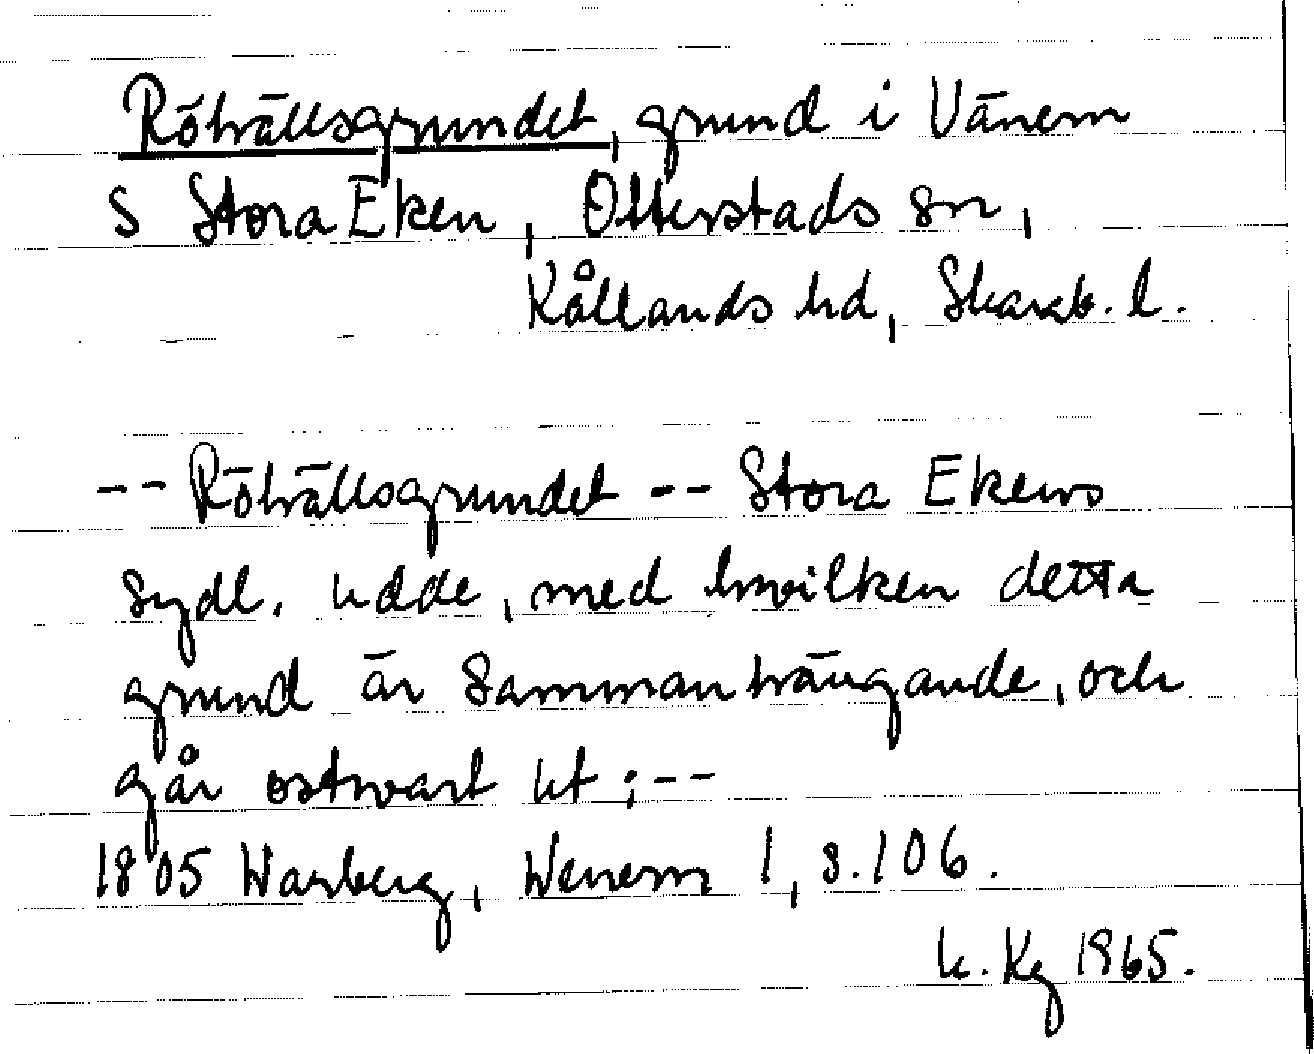 Röhällsgrundet, grund i Vänern
S Stora Eken, Otterstads sn,
Kållands hd, Skarab. l.
-- Röhällsgrundet -- Stora Ekens
sydl. udde, med hwilken detta
grund är sammanhängande, och
går ostwart ut; --
1805 Warberg, Wenern 1, s. 106.
Kg 1965.